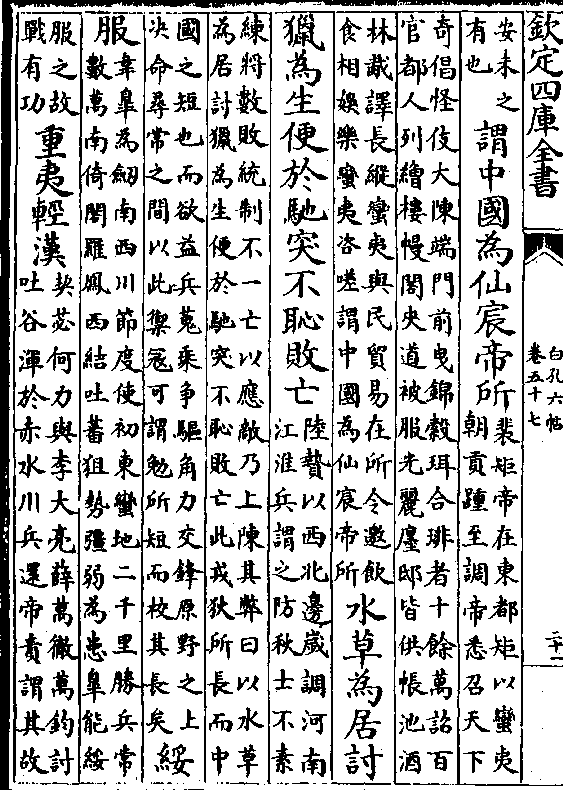 欽定四庫全書
白孔六帖
卷五十七
二十一
安未之
有也
謂中國為仙宸帝所
裴矩帝在東都矩以蠻夷
朝貢踵至諷帝悉召天下
奇倡怪伎大陳端門前曳錦縠珥合琲者十餘萬詔百
官都人列繒樓幔閣夾道被服光麗廛邸皆供帳池酒
林胾譯長縱蠻夷與民貿易在所令邀飲
食相娛樂蠻夷咨嗟謂中國為仙宸帝所
水草為居討
獵為生便於馳突不恥敗亡
陸贄以西北邊歲調河南
江淮兵謂之防秋士不素
練將數敗統制不一亡以應敵乃上陳其弊曰以水草
為居討獵為生便於馳突不恥敗亡此戎狄所長而中
國之短也而欲益兵蒐乘爭驅角力交鋒原野之上
决命尋常之間以此禦冦可謂勉所短而校其長矣
綏
服
韋臯為劒南西川節度使初東蠻地二千里勝兵常
數萬南倚閣羅鳳西結吐蕃狙勢彊弱為患臯能綏
服之故
戰有功
重夷輕漢
契苾何力與李大亮薛萬徹萬鈞討
吐谷渾於赤水川兵還帝責謂其故